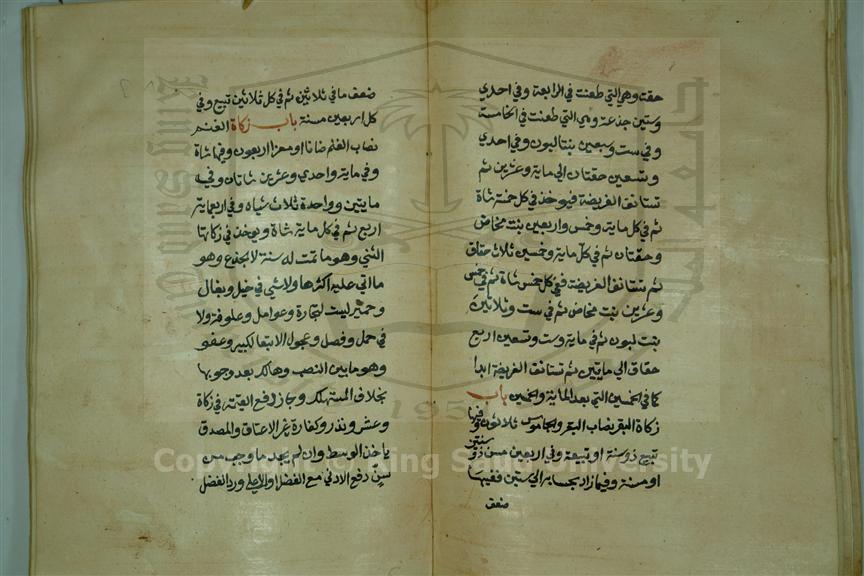 حقت وهي التي طعنت في الرابعة وفي احدي
وستين جذعة وهي التي طعنت في الخامسة
وفي ست وسبعين بنتا لبون وفي احدي
وتسعين حقتان الى ماية وعشرين ثم
تستانف الفريضة فيوخذ في كل خمسة شاة
ثم في كل ماية وخمس واربعين بنت مخاض
وحقتان ثم في كل ماية وخمسين ثلاث حقاق
ثم تستانف الفريضة ففي كل خمس شاة ثم في خمس
وعشرين بنت مخاض ثم في ست وثلاثين
بنت لبون ثم في ماية وست وتسعين اربع
حقاق الي مايتين ثم تستانف الفريضة ابدا
كما في الخمسين التي بعد الماية والخمسين باب
زكاة البقر نصاب البقر والجاموس ثلاثون وفيها
تبيع ذو سنة او تبيعة وفي اربعين مسن ذو سنتين
او مسنة وفيما زاد بحسابه الي ستين ففيها
ضعف
ضعف ما في ثلاثين ثم في كل ثلاثين تبيع وفي
كل اربعين مسنة باب زكاة الغنم
نصاب الغنم ضانا او معزا اربعون وفيها شاة
وفي ماية واحدي وعشرين شاتان وفي
مايتين وواحدة ثلاث شياه وفي اربعماية
اربع ثم في كل ماية شاة ويوخذ في زكاتها
الثني وهو ما تمت له سنة لا الجذع وهو
ما اتي عليه اكثرها ولا شي في خيل وبغال
وحمير ليست لتجارة وعوامل وعلوفة ولا
في حمل وفصل وعجول الا تبعا لكبير وعفو
وهو ما بين النصب وهالك بعد وجوبها
بخلاف المستهلك وجاز دفع القيمة في زكاة
وعشر ونذر وكفارة غير الاعتاق والمصدق
ياخذ الوسط وان لم يجد ما وجب من
سن دفع الادني مع الفضل او الاعلي ورد الفضل
Copyright © King Saud University
جامعة الملك سعود
King Saud University
1957